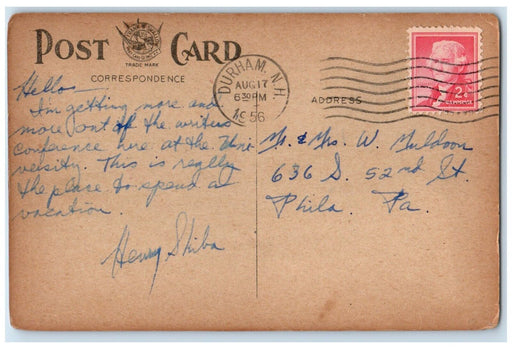 POST CARD
TRADE MARK
CORRESPONDENCE
DURHAM, N.H.
AUG 17
6 30 PM
1956
ADDRESS
2¢
Hello
I'm getting more and
more out of the writers
conference here at the Uni
versity. This is really
the place to spend a
vacation.
Henry Shiba
Mr. & Mrs. W. Muldoon
636 S. 52nd St.
Phila. Pa.